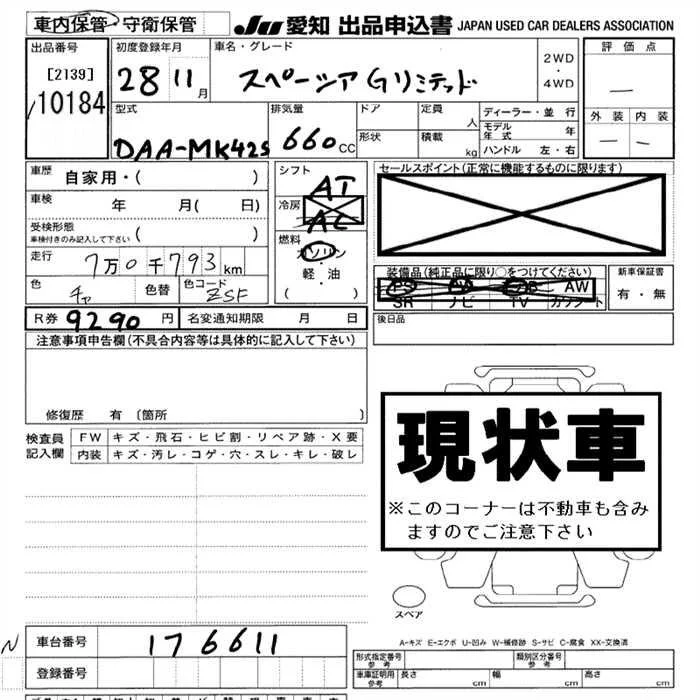 車内保管・守衛保管
JU 愛知 出品申込書 JAPAN USED CAR DEALERS ASSOCIATION
出品番号
[2139]
10184
初度登録年月
28 11月
車名・グレード
スペーシア Gリミテッド
2WD
・
4WD
評価点
—
外装 内装
— —
型式
DAA-MK42S
排気量
660cc
ドア
形状
定員 人
積載 kg
ディーラー・並行
モデル年式 年
ハンドル 左・右
車歴 自家用・( )
車検 年 月( 日)
受検形態
車検付きのみ記入して下さい ( )
走行 7万0千793km
色 チャ 色替 色コード ZSF
シフト AT
冷房 AC
燃料
ガソリン
軽・油
( )
セールスポイント(正常に機能するものに限ります)
装備品(純正品に限り○をつけてください)
PS PW AB AW
SR ナビ TV カワシート
新車保証書
有・無
R券 9290円 名変通知期限 月 日
後日品
注意事項申告欄(不具合内容等は具体的に記入して下さい)
修復歴 有 〔箇所 〕
検査員記入欄
FW キズ・飛石・ヒビ割・リペア跡・X要
内装 キズ・汚レ・コゲ・穴・スレ・キレ・破レ
現状車
※このコーナーは不動車も含み
ますのでご注意下さい
スペア
A-キズ E-エクボ U-凹み W-補修跡 S-サビ C-腐食 XX-交換済
N
車台番号 176611
登録番号
形式指定番号 参考
類別区分番号 参考
車庫証明用 参考 長さ cm 幅 cm 高さ cm